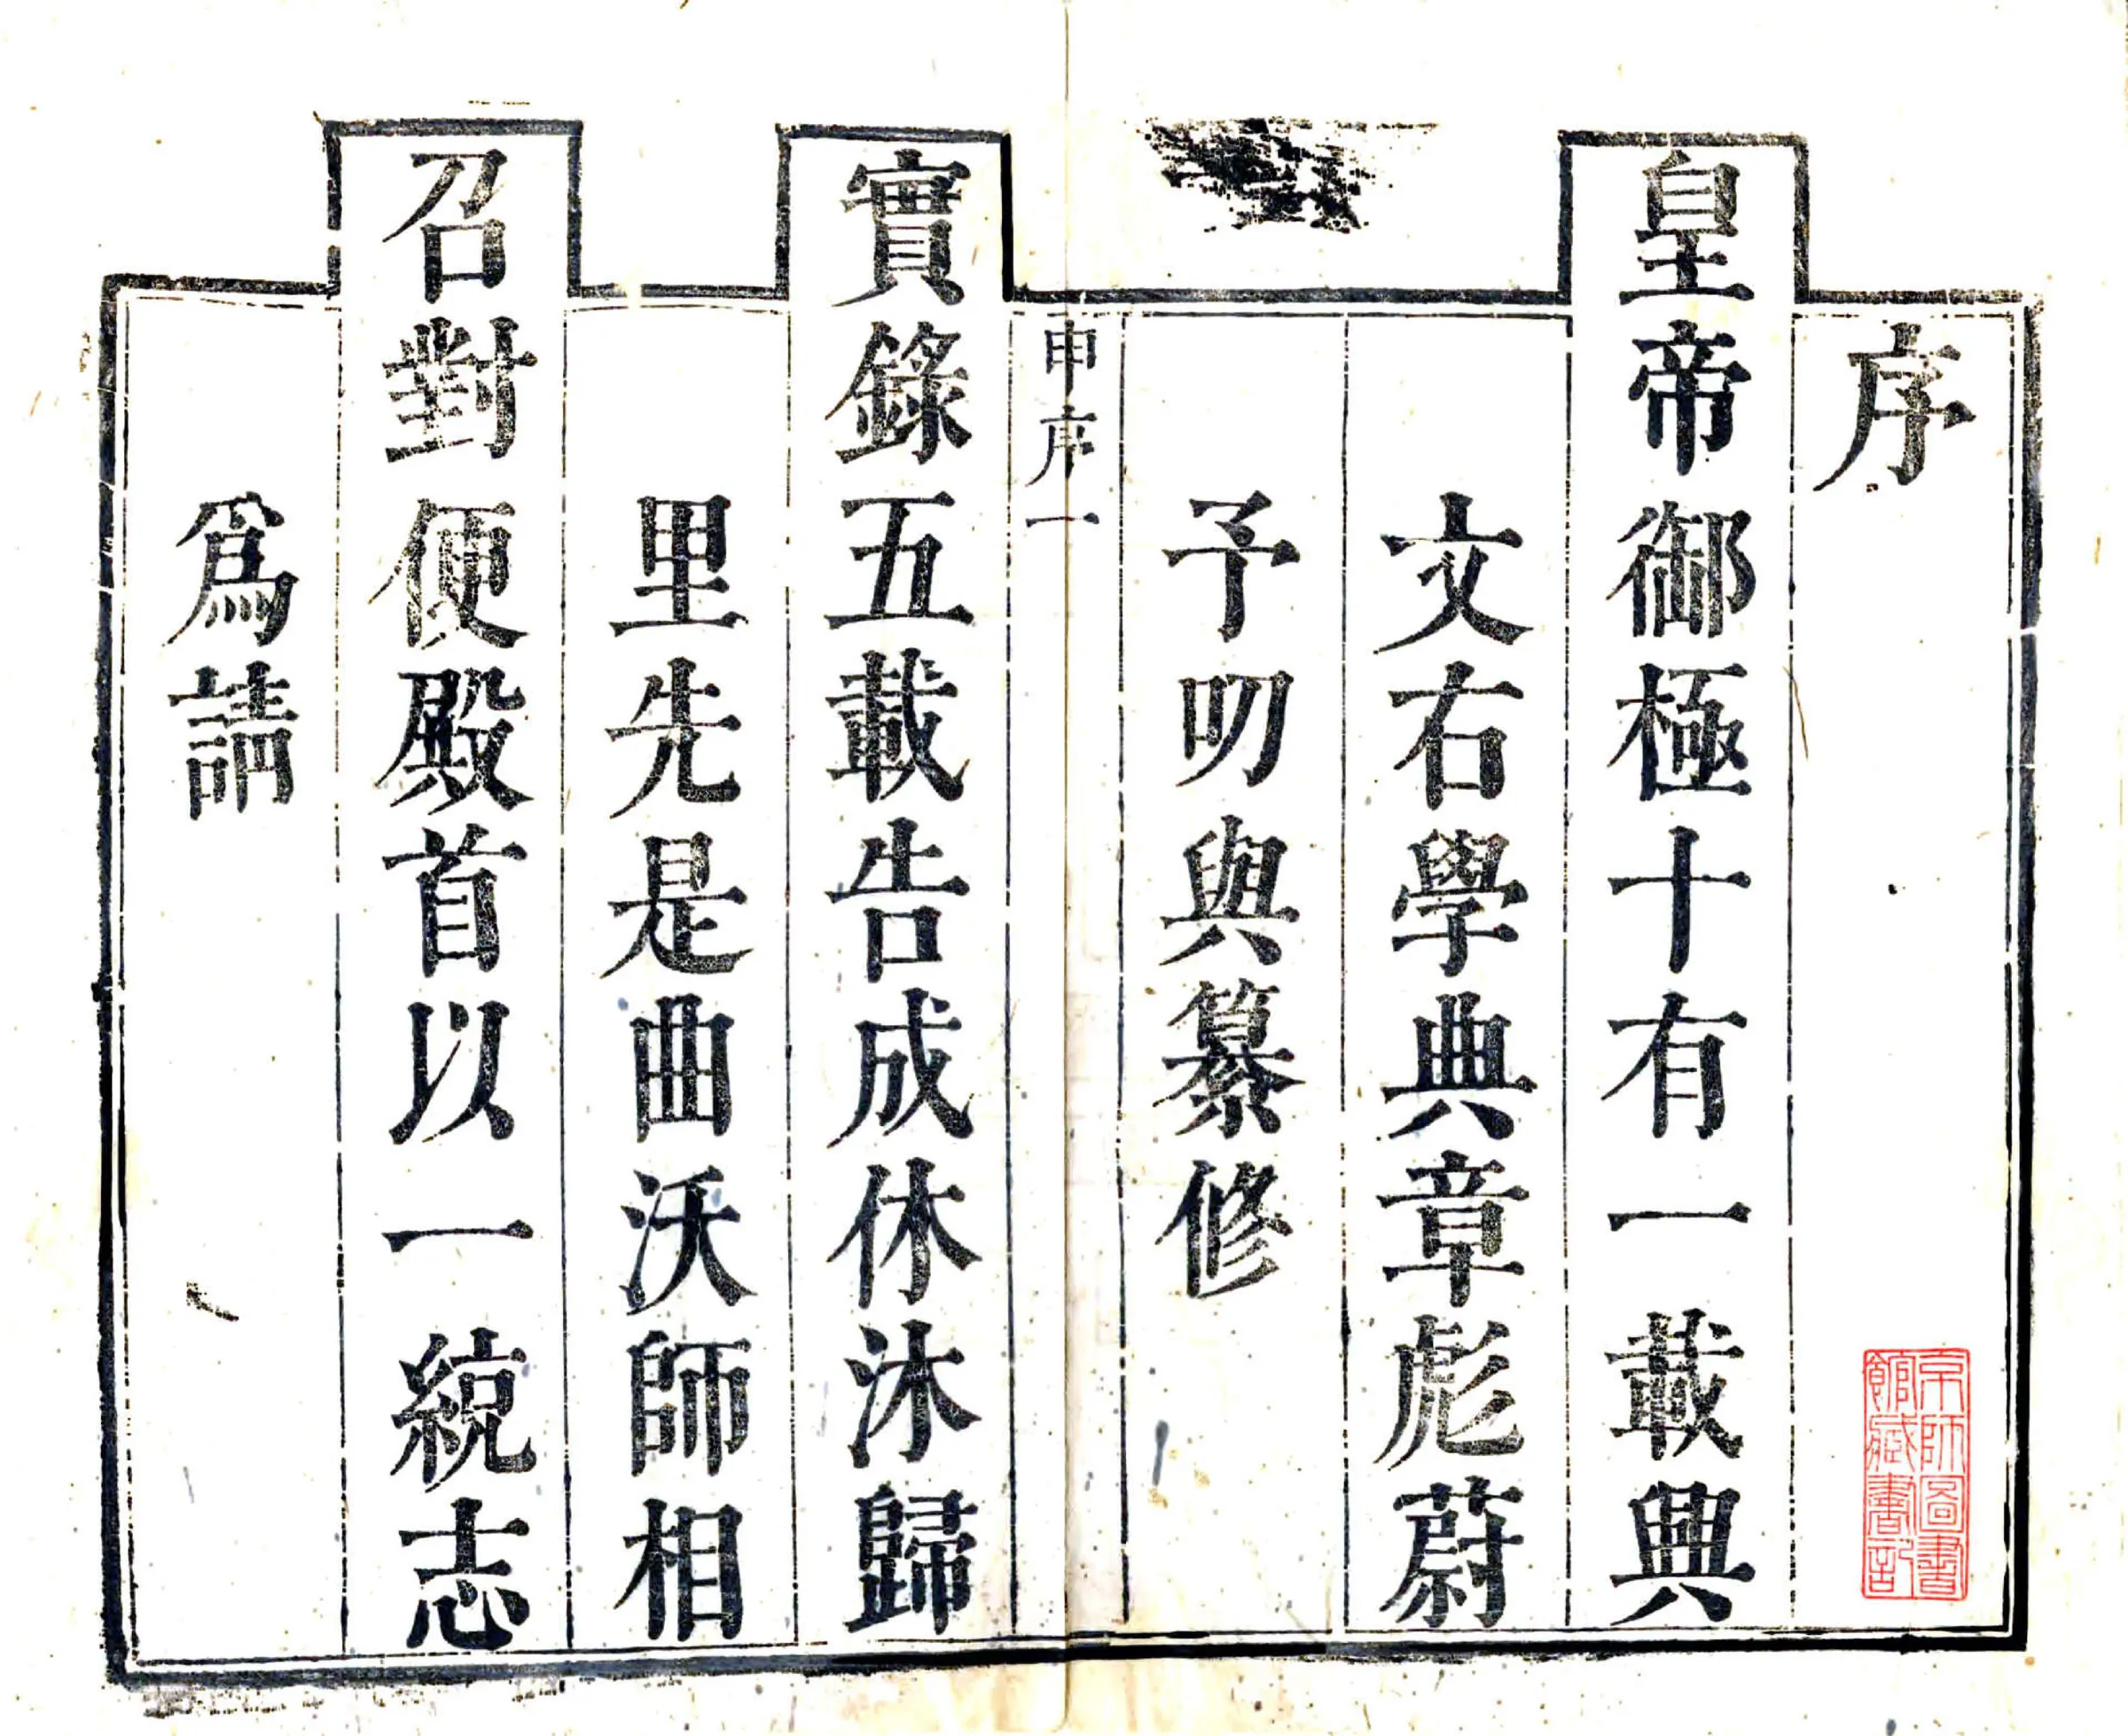 序
皇帝御極十有一載興
文右學典章彪蔚
予叨與纂修
申序一
實錄五載告成休沐歸
里先是曲沃師相
召對便殿首以一統志
爲請
京師圖書
館藏書記